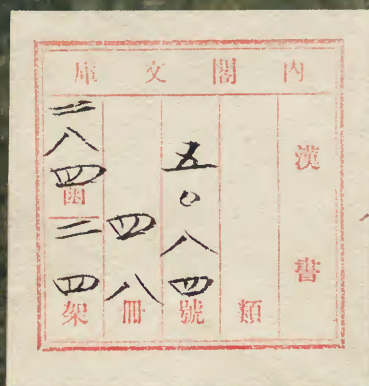 內閣文庫
漢書
類
五〇八四號
四八冊
二八四函
二四架